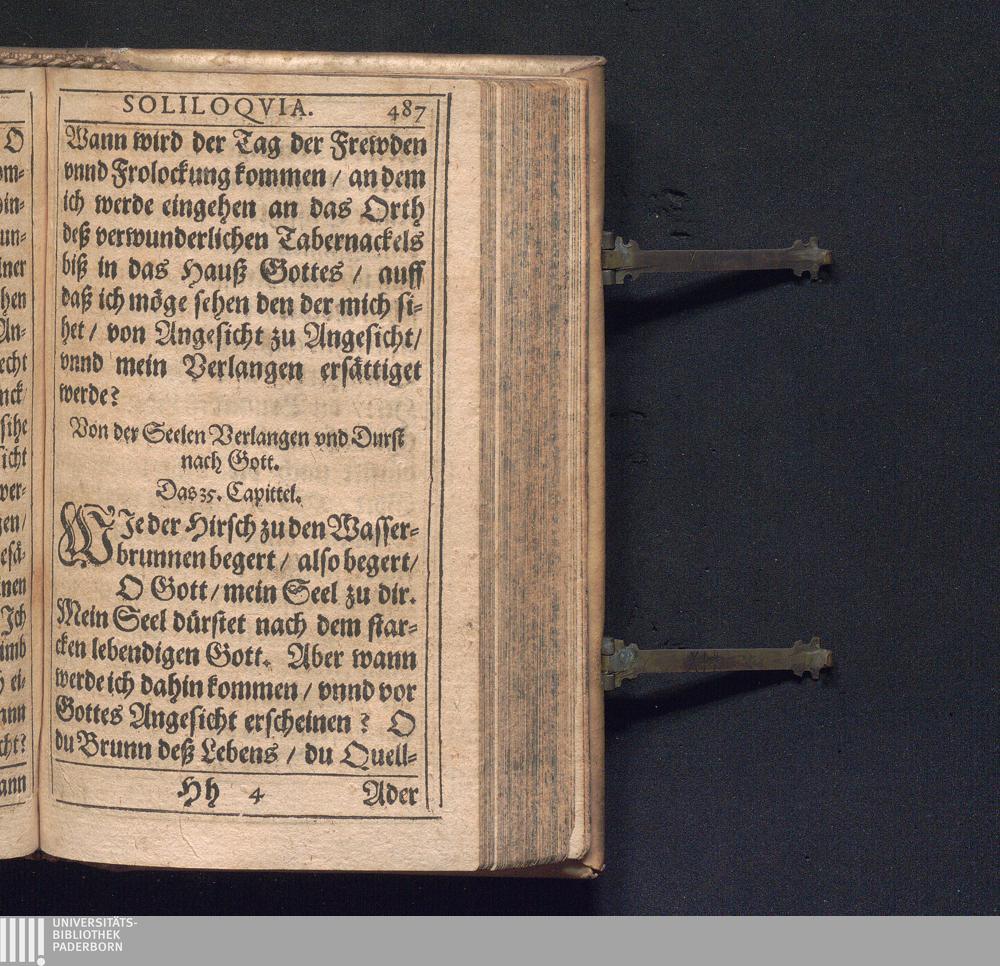 SOLILOQVIA. 487
Wann wird der Tag der Frewden
vnnd Frolockung kommen / an dem
ich werde eingehen an das Orth
deß verwunderlichen Tabernackels
biß in das Hauß Gottes / auff
daß ich möge sehen den der mich si-
het / von Angesicht zu Angesicht /
vnnd mein Verlangen ersättiget
werde?
Von der Seelen Verlangen vnd Durst
nach Gott.
Das 35. Capittel.
WJe der Hirsch zu den Wasser-
brunnen begert / also begert /
O Gott / mein Seel zu dir.
Mein Seel dürstet nach dem star-
cken lebendigen Gott. Aber wann
werde ich dahin kommen / vnnd vor
Gottes Angesicht erscheinen ? O
du Brunn deß Lebens / du Quell-
Hh 4 Ader
UNIVERSITÄTS-
BIBLIOTHEK
PADERBORN